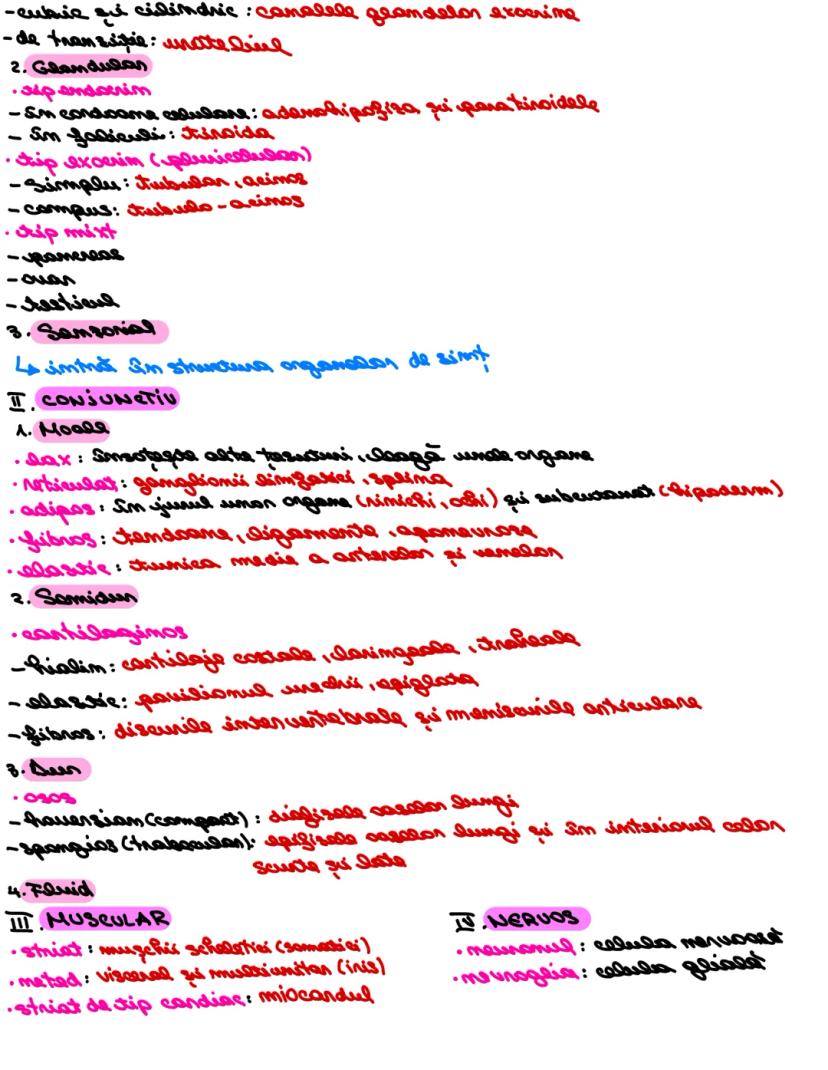 -cubic și cilindric: canalele glandelor exocrine
-de tranziție: uroteliul
2. Glandular
• tip endocrin
- în cordoane celulare: adenohipofiza și paratiroidele
- în foliculi: tiroida
• tip exocrin (pluricelular)
- simplu: tubular, acinos
- compus: tubulo-acinos
• tip mixt
- pancreas
- ovar
- testicul
3. Senzorial
↳ intră în structura organelor de simț
II. CONJUNCTIV
1. Moale
• lax: însoțește alte țesuturi, leagă unele organe
• reticulat: ganglionii limfatici, splina
• adipos: în jurul unor organe (rinichi, ochi) și subcutanat (hipoderm)
• fibros: tendoane, ligamente, aponevroze
• elastic: tunica medie a arterelor și venelor
2. Semidur
• cartilaginos
- hialin: cartilaje costale, laringeale, traheale
- elastic: pavilionul urechii, epiglota
- fibros: discurile intervertebrale și meniscurile articulare
3. Dur
• osos
- haversian (compact): diafizele oaselor lungi
- spongios (trabecular): epifizele oaselor lungi și în interiorul celor
scurte și late
4. Fluid
III. MUSCULAR
• striat: mușchii scheletici (somatici)
• neted: visceral și multiunitar (iris)
• striat de tip cardiac: miocardul
IV. NERVOS
• neuronul: celula nervoasă
• nevroglia: celula glială